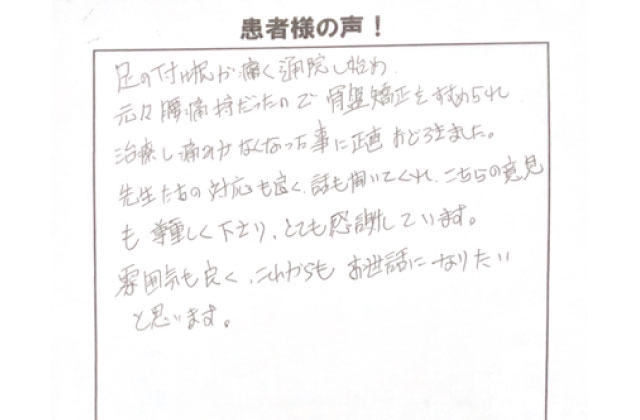 患者様の声！
足の付け根が痛く通院し始め
元々腰痛持だったので骨盤矯正をすすめられ
治療し痛みがなくなった事に正直おどろきました。
先生たちの対応も良く、話も聞いてくれ、こちらの意見
も尊重して下さり、とても感謝しています。
雰囲気も良く、これからもお世話になりたい
と思います。